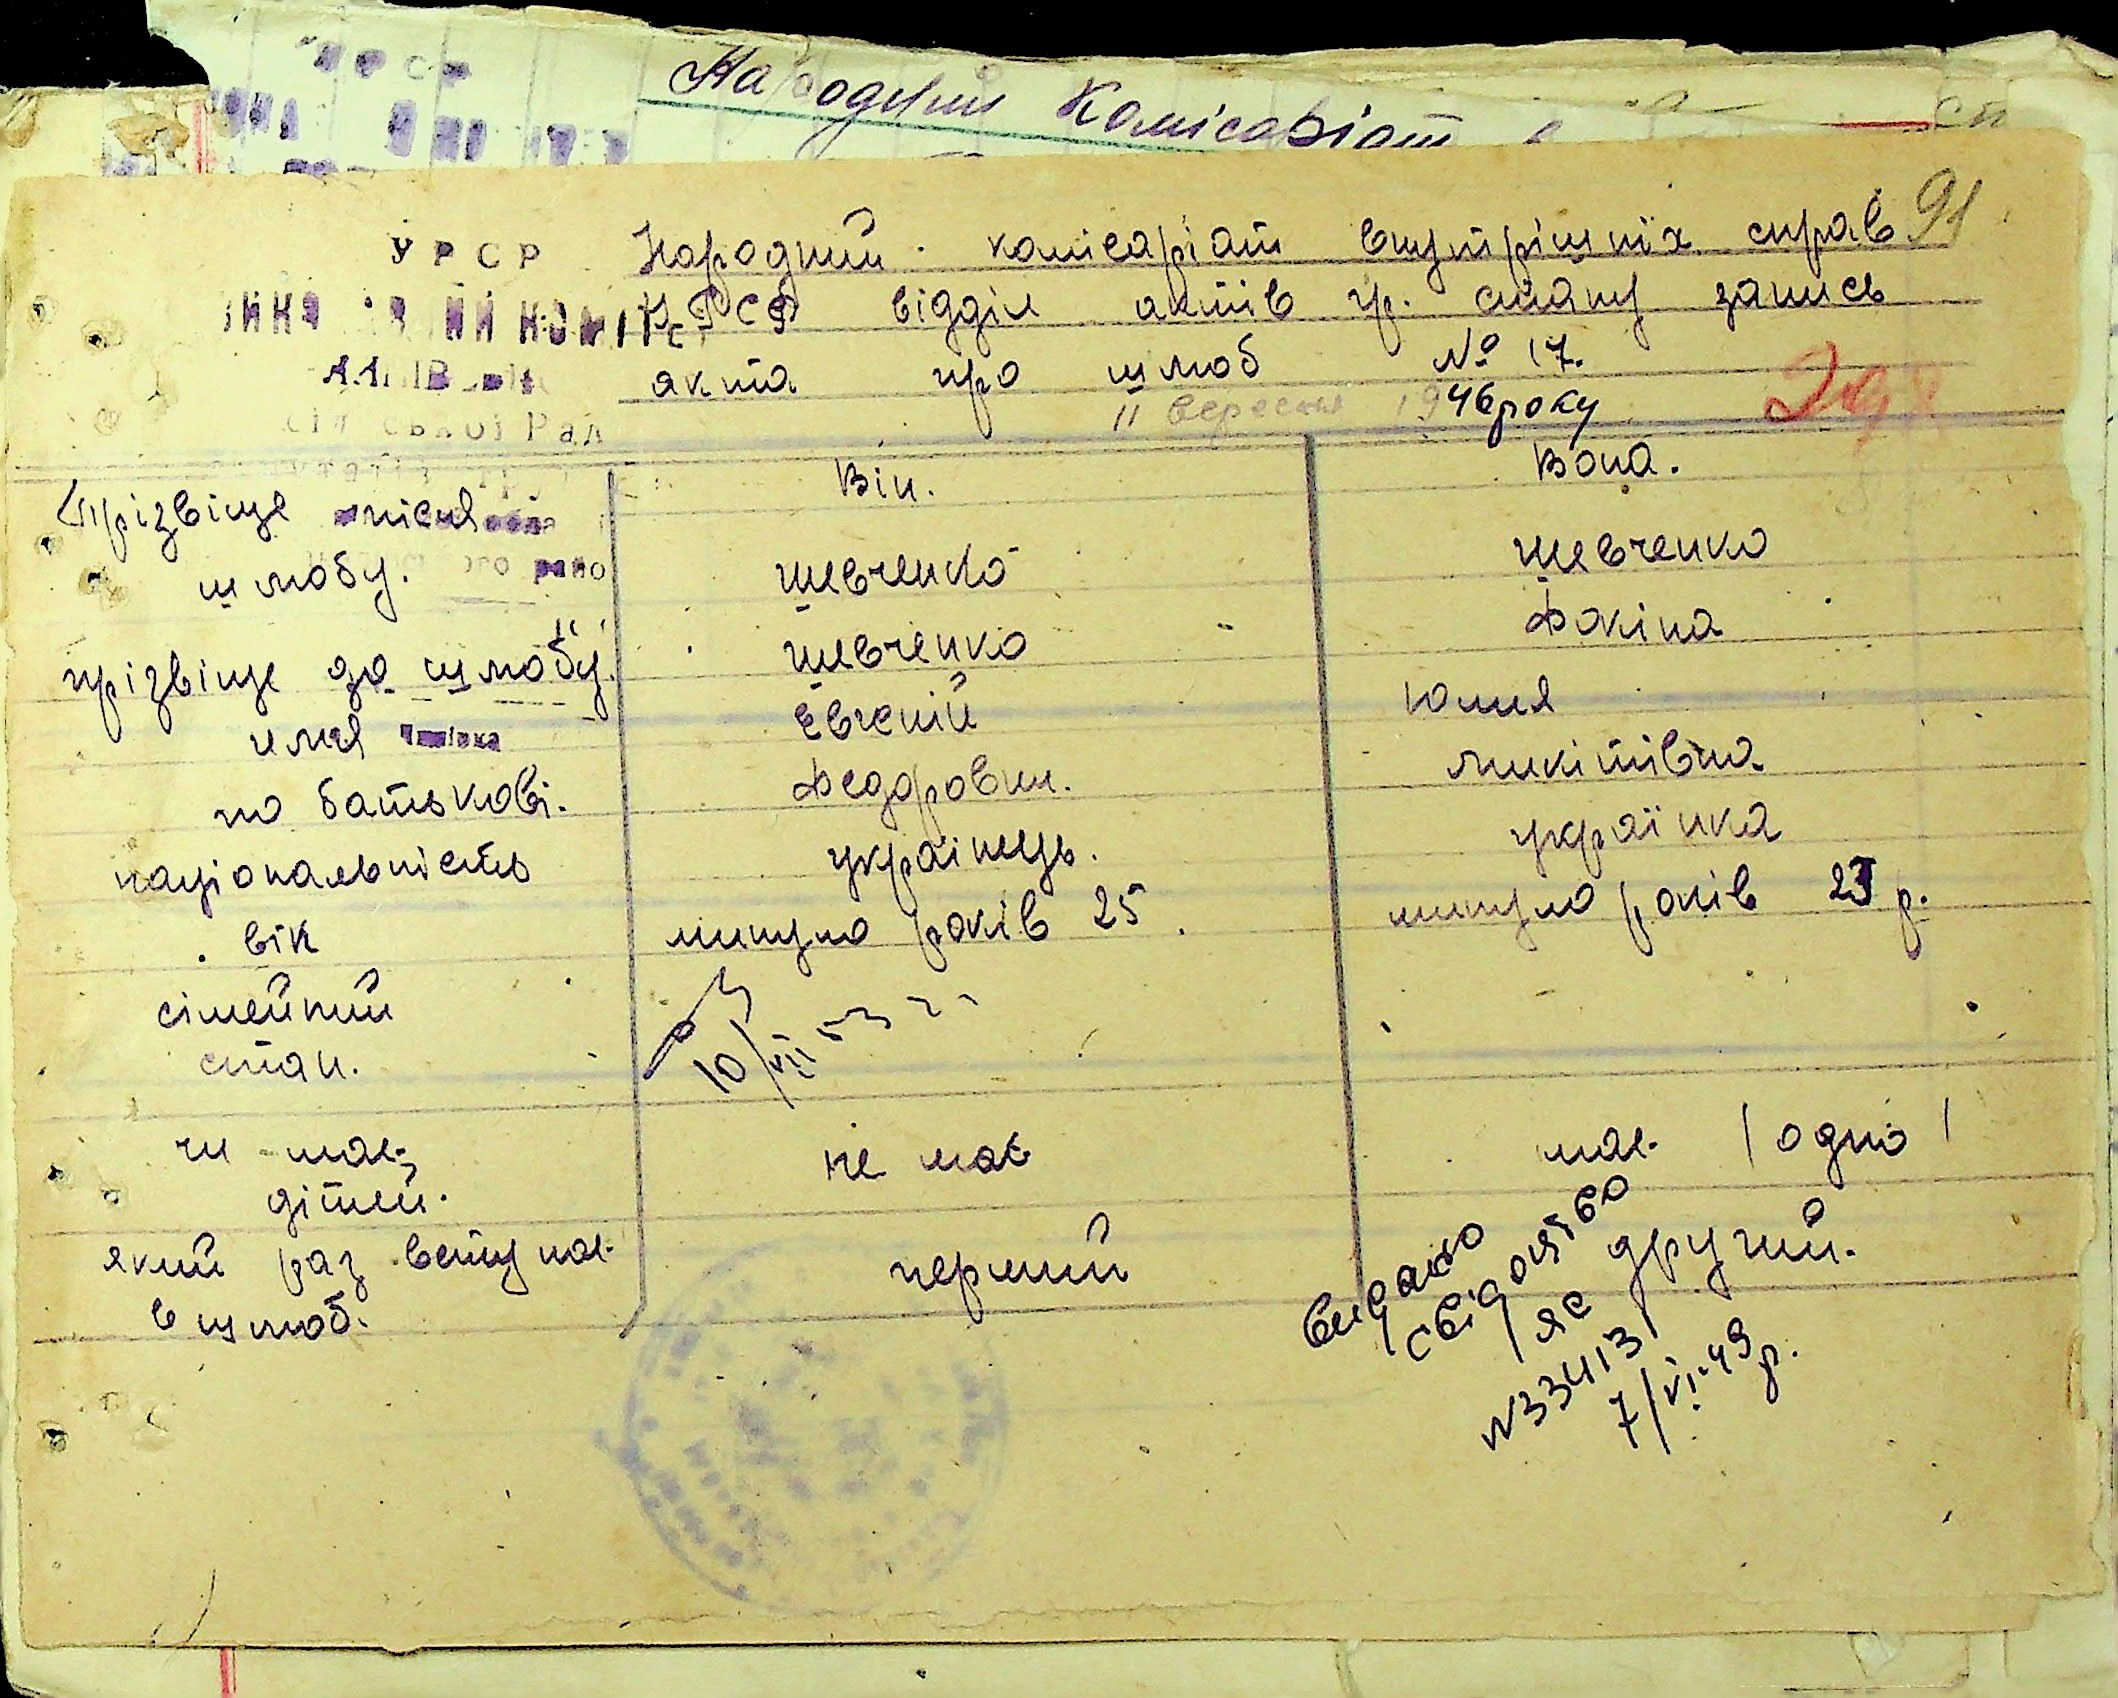 Народний Комісаріат
91
У Р С Р
Народний комісаріат внутрішніх справ
УРСР відділ актів гр. стану запись
акта про шлюб № 17.
11 вересня 1946 року
Він.
Вона.
Прізвіще після
шлюбу.
Шевченко
Шевченко
прізвіще до шлюбу.
Шевченко
Фокіна
имя
Євгеній
Юлия
по батькові.
Федорович.
Микітівна
національність
українець.
українка
вік
минуло років 25.
минуло років 23 р.
сімейний
стан.
10/VII 53
чи має
дітей.
не має
має. /одно/
який раз вступає
в шлюб.
перший
другий.
видано
свідоцтво
ЯЄ
№33413
7/VI-49р.